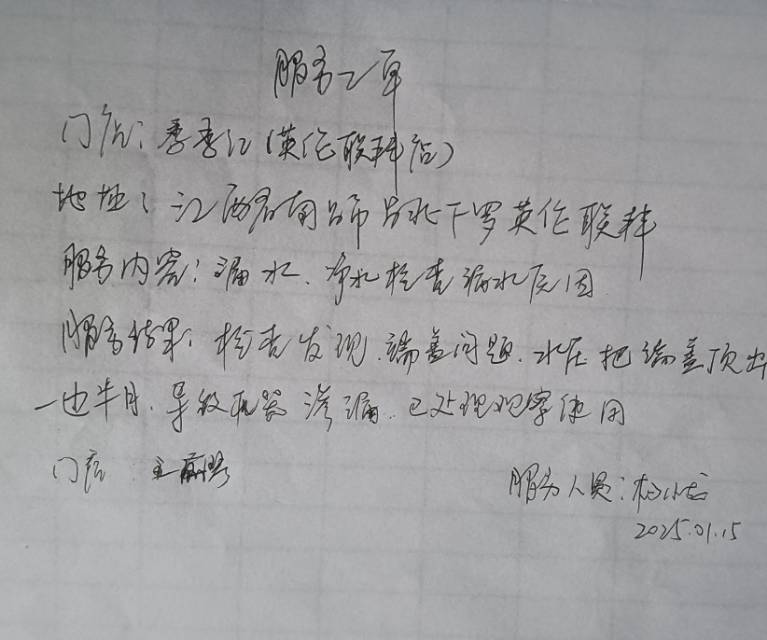 服务工单
门店：季季红（英伦联邦店）
地址：江西省南昌市昌北下罗英伦联邦
服务内容：漏水、净水检查漏水原因
服务结果：检查发现、端盖问题、水压把端盖顶出
一边半月、导致机器渗漏、已处理观察使用
门店
服务人员：
2025.01.15